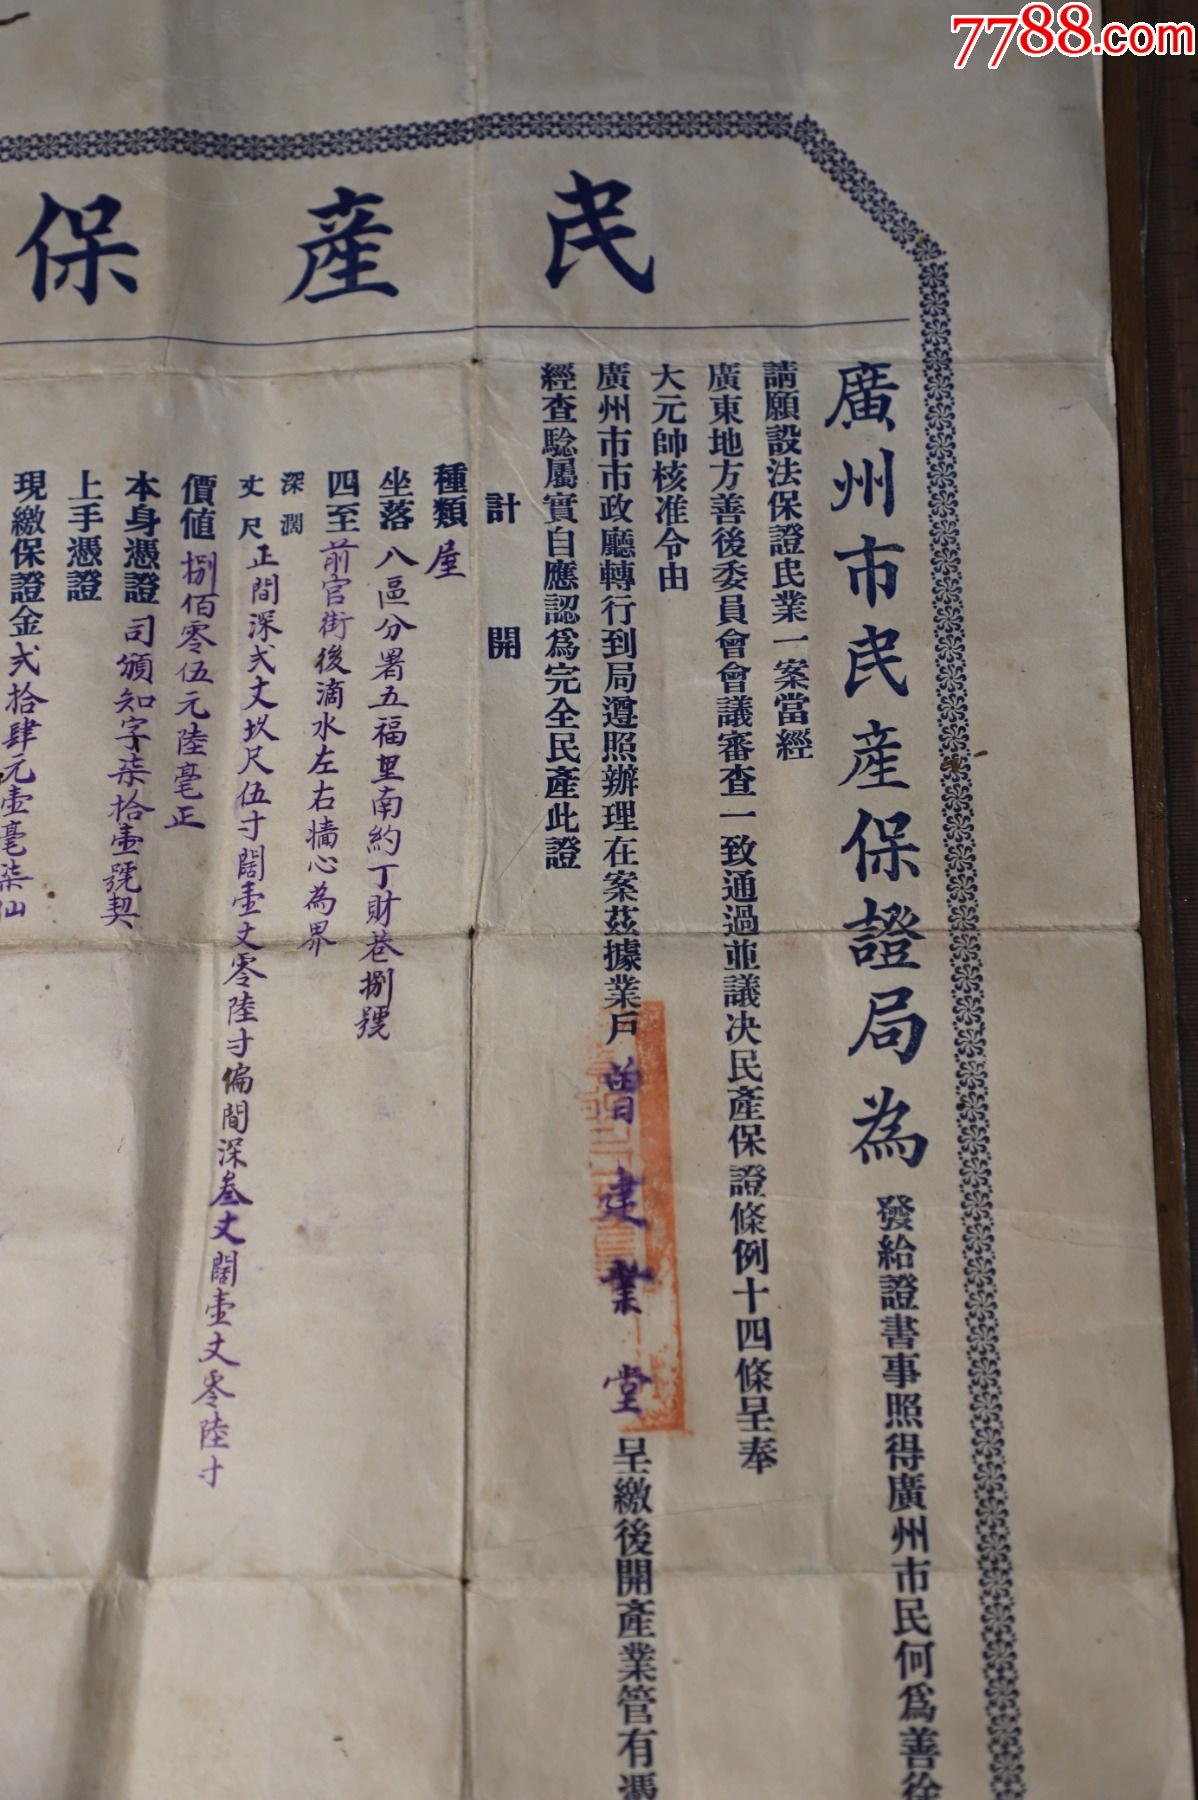 7788.com
民產保
廣州市民產保證局為發給證書事照得廣州市民何爲善徐
請願設法保證民業一案當經
廣東地方善後委員會會議審查一致通過並議决民產保證條例十四條呈奉
大元帥核准令由
廣州市市政廳轉行到局遵照辦理在案茲據業戶曾建業堂呈繳後開產業管有憑
經查騐屬實自應認爲完全民產此證
計開
種類屋
坐落八區分署五福里南約丁財巷捌號
四至前官街後滴水左右墻心為界
深濶丈尺正間深弍丈玖尺伍寸闊壹丈零陸寸偏間深叁丈闊壹丈零陸寸
價值捌佰零伍元陸毫正
本身憑證司頒知字柒拾壹號契
上手憑證
現繳保證金弍拾肆元壹毫柒仙